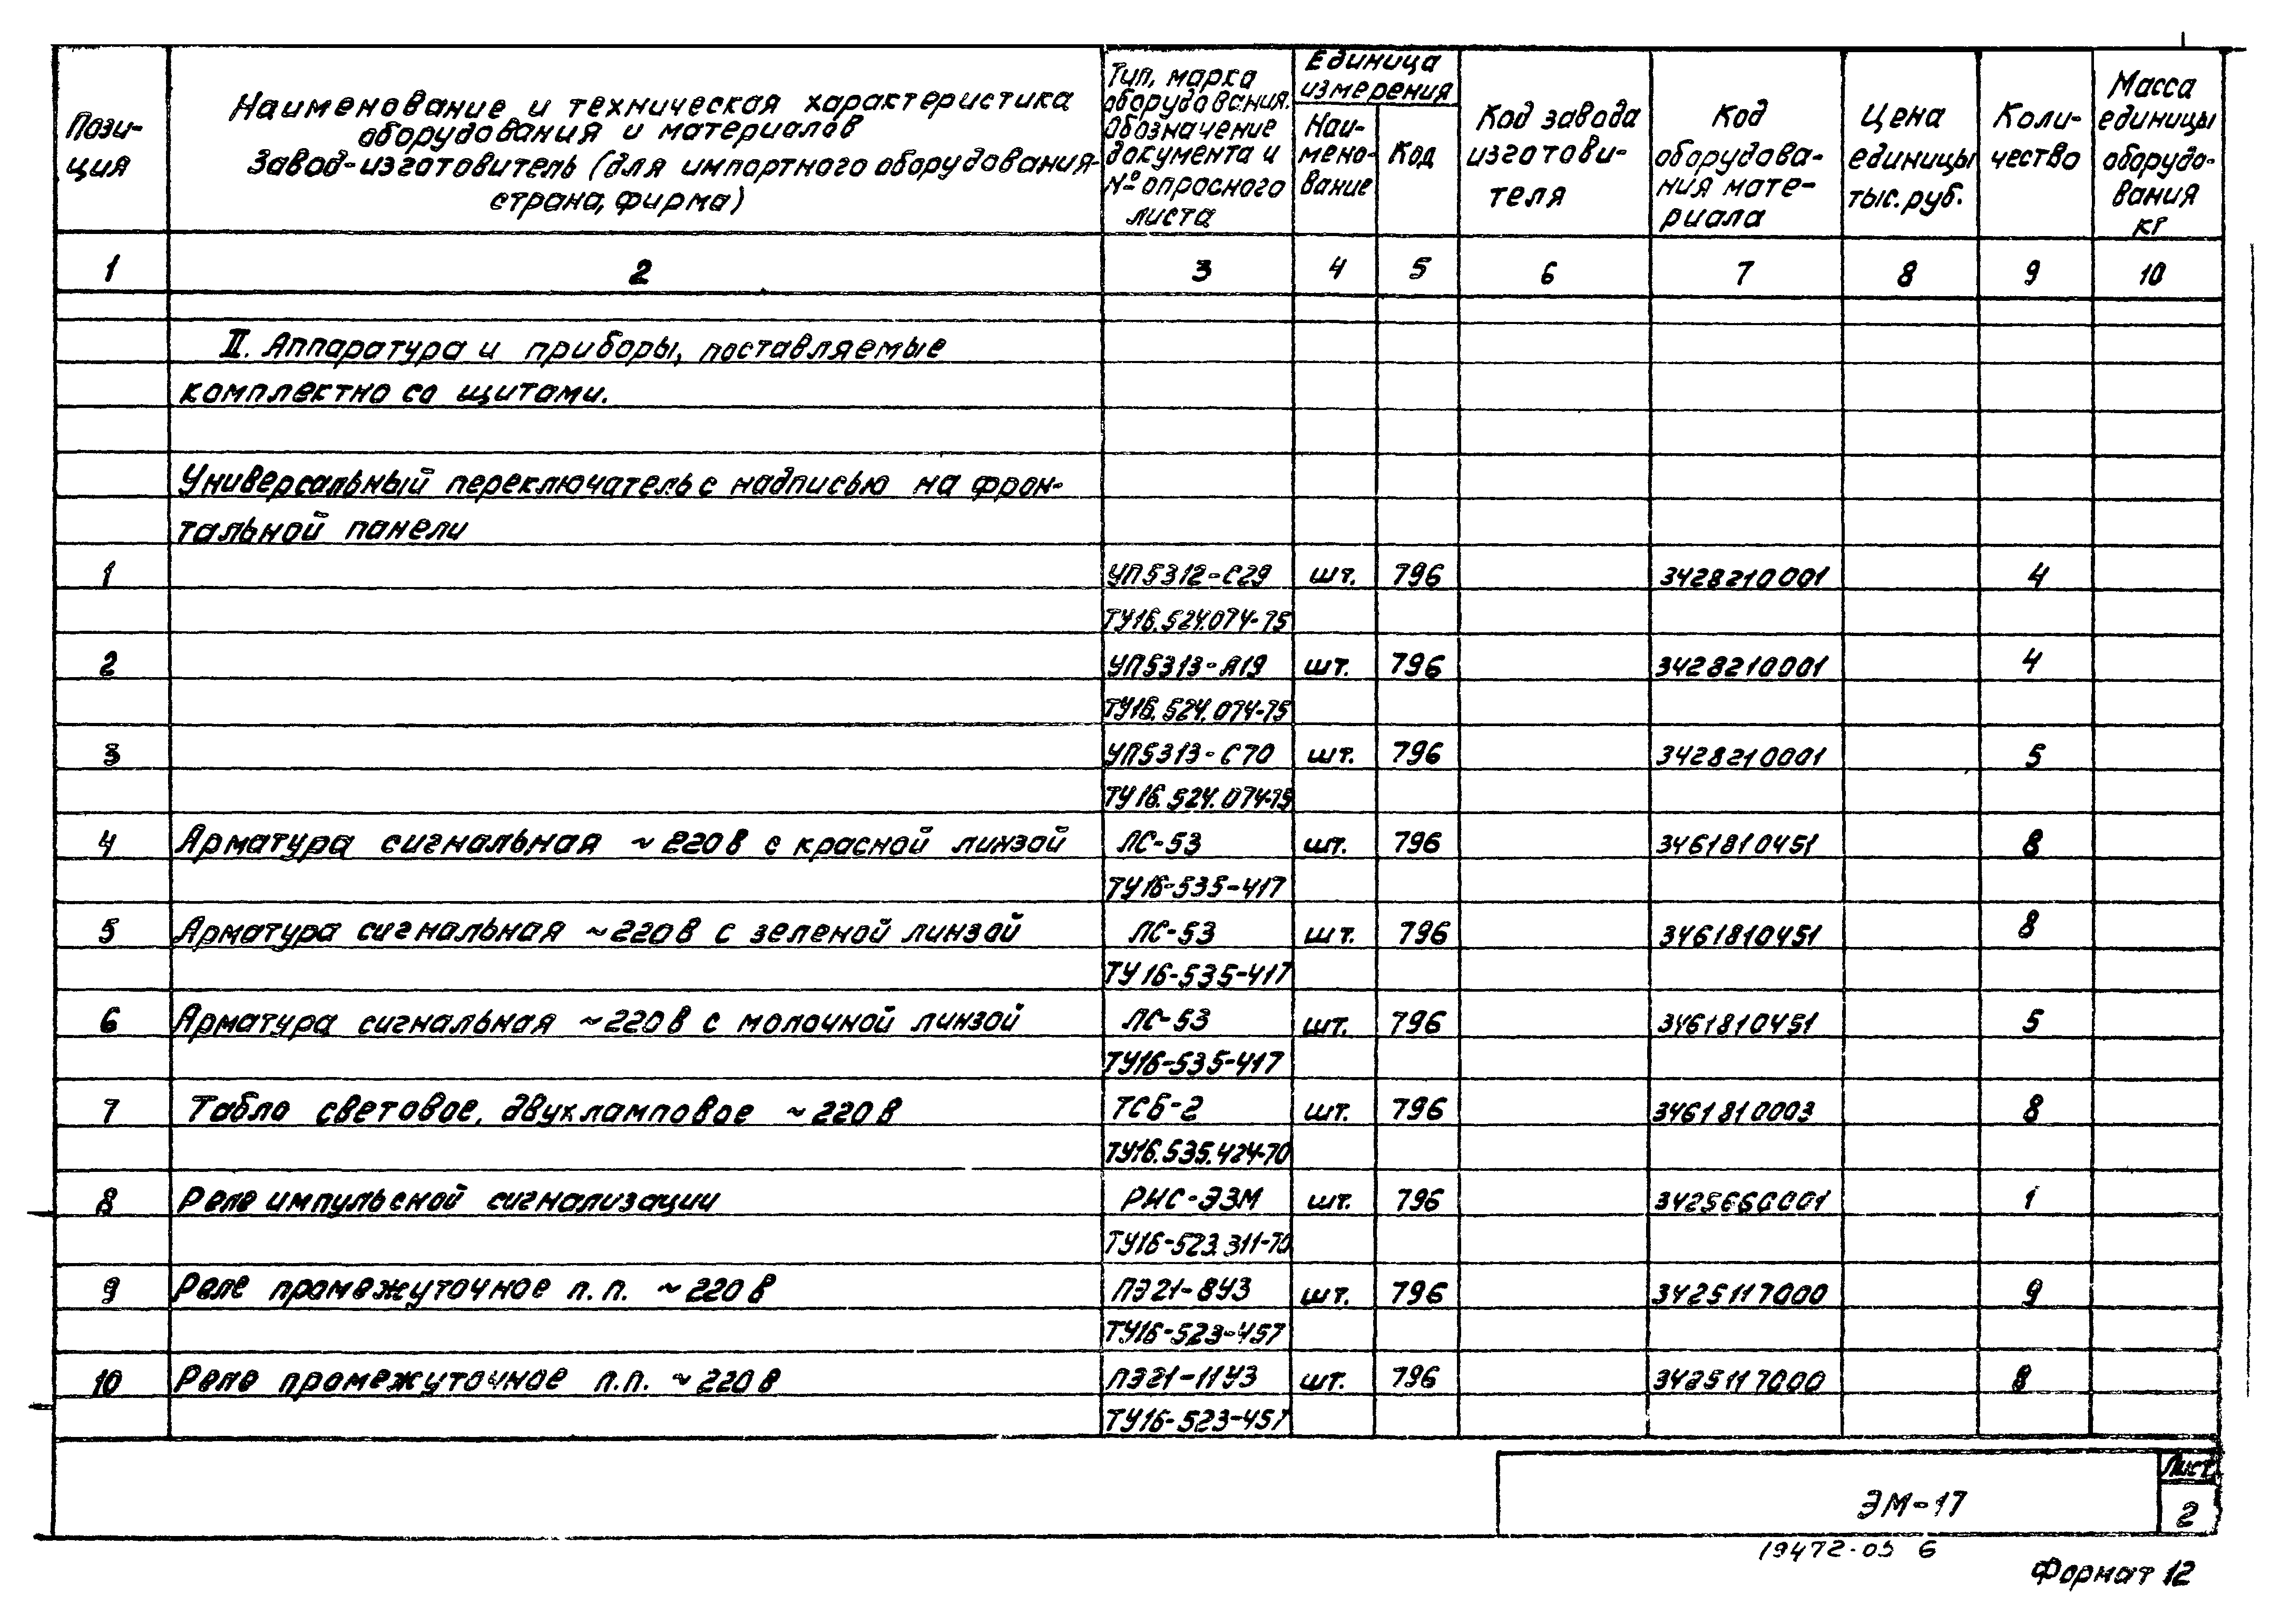 Пози-
ция
Наименование и техническая характеристика
оборудования и материалов
Завод-изготовитель (для импортного оборудования-
страна, фирма)
Тип, марка
оборудования.
Обозначение
документа и
№ опросного
листа
Единица
измерения
Наи-
мено-
вание
Код
Код завода
изготови-
теля
Код
оборудова-
ния мате-
риала
Цена
единицы
тыс. руб.
Коли-
чество
Масса
единицы
оборудо-
вания
кг
1 2 3 4 5 6 7 8 9 10
II. Аппаратура и приборы, поставляемые
комплектно со щитами.
Универсальный переключатель с надписью на фрон-
тальной панели
1 УП5312-С29 шт. 796 3428210001 4
ТУ16.524.074-75
2 УП5313-А19 шт. 796 3428210001 4
ТУ16.524.074-75
3 УП5313-С70 шт. 796 3428210001 5
ТУ16.524.074-75
4 Арматура сигнальная ~220В с красной линзой ЛС-53 шт. 796 3461810451 8
ТУ16-535-417
5 Арматура сигнальная ~220В с зеленой линзой ЛС-53 шт. 796 3461810451 8
ТУ16-535-417
6 Арматура сигнальная ~220В с молочной линзой ЛС-53 шт. 796 3461810451 5
ТУ16-535-417
7 Табло световое, двухламповое ~220В ТСБ-2 шт. 796 3461810003 8
ТУ16.535.424-70
8 Реле импульсной сигнализации РИС-ЭЗМ шт. 796 3425660001 1
ТУ16-523.311-70
9 Реле промежуточное п.п. ~220В ПЭ21-8УЗ шт. 796 3425117000 9
ТУ16-523-457
10 Реле промежуточное п.п. ~220В ПЭ21-11УЗ шт. 796 3425117000 8
ТУ16-523-457
Лист
ЭМ-17
2
19472-05 6
Формат 12